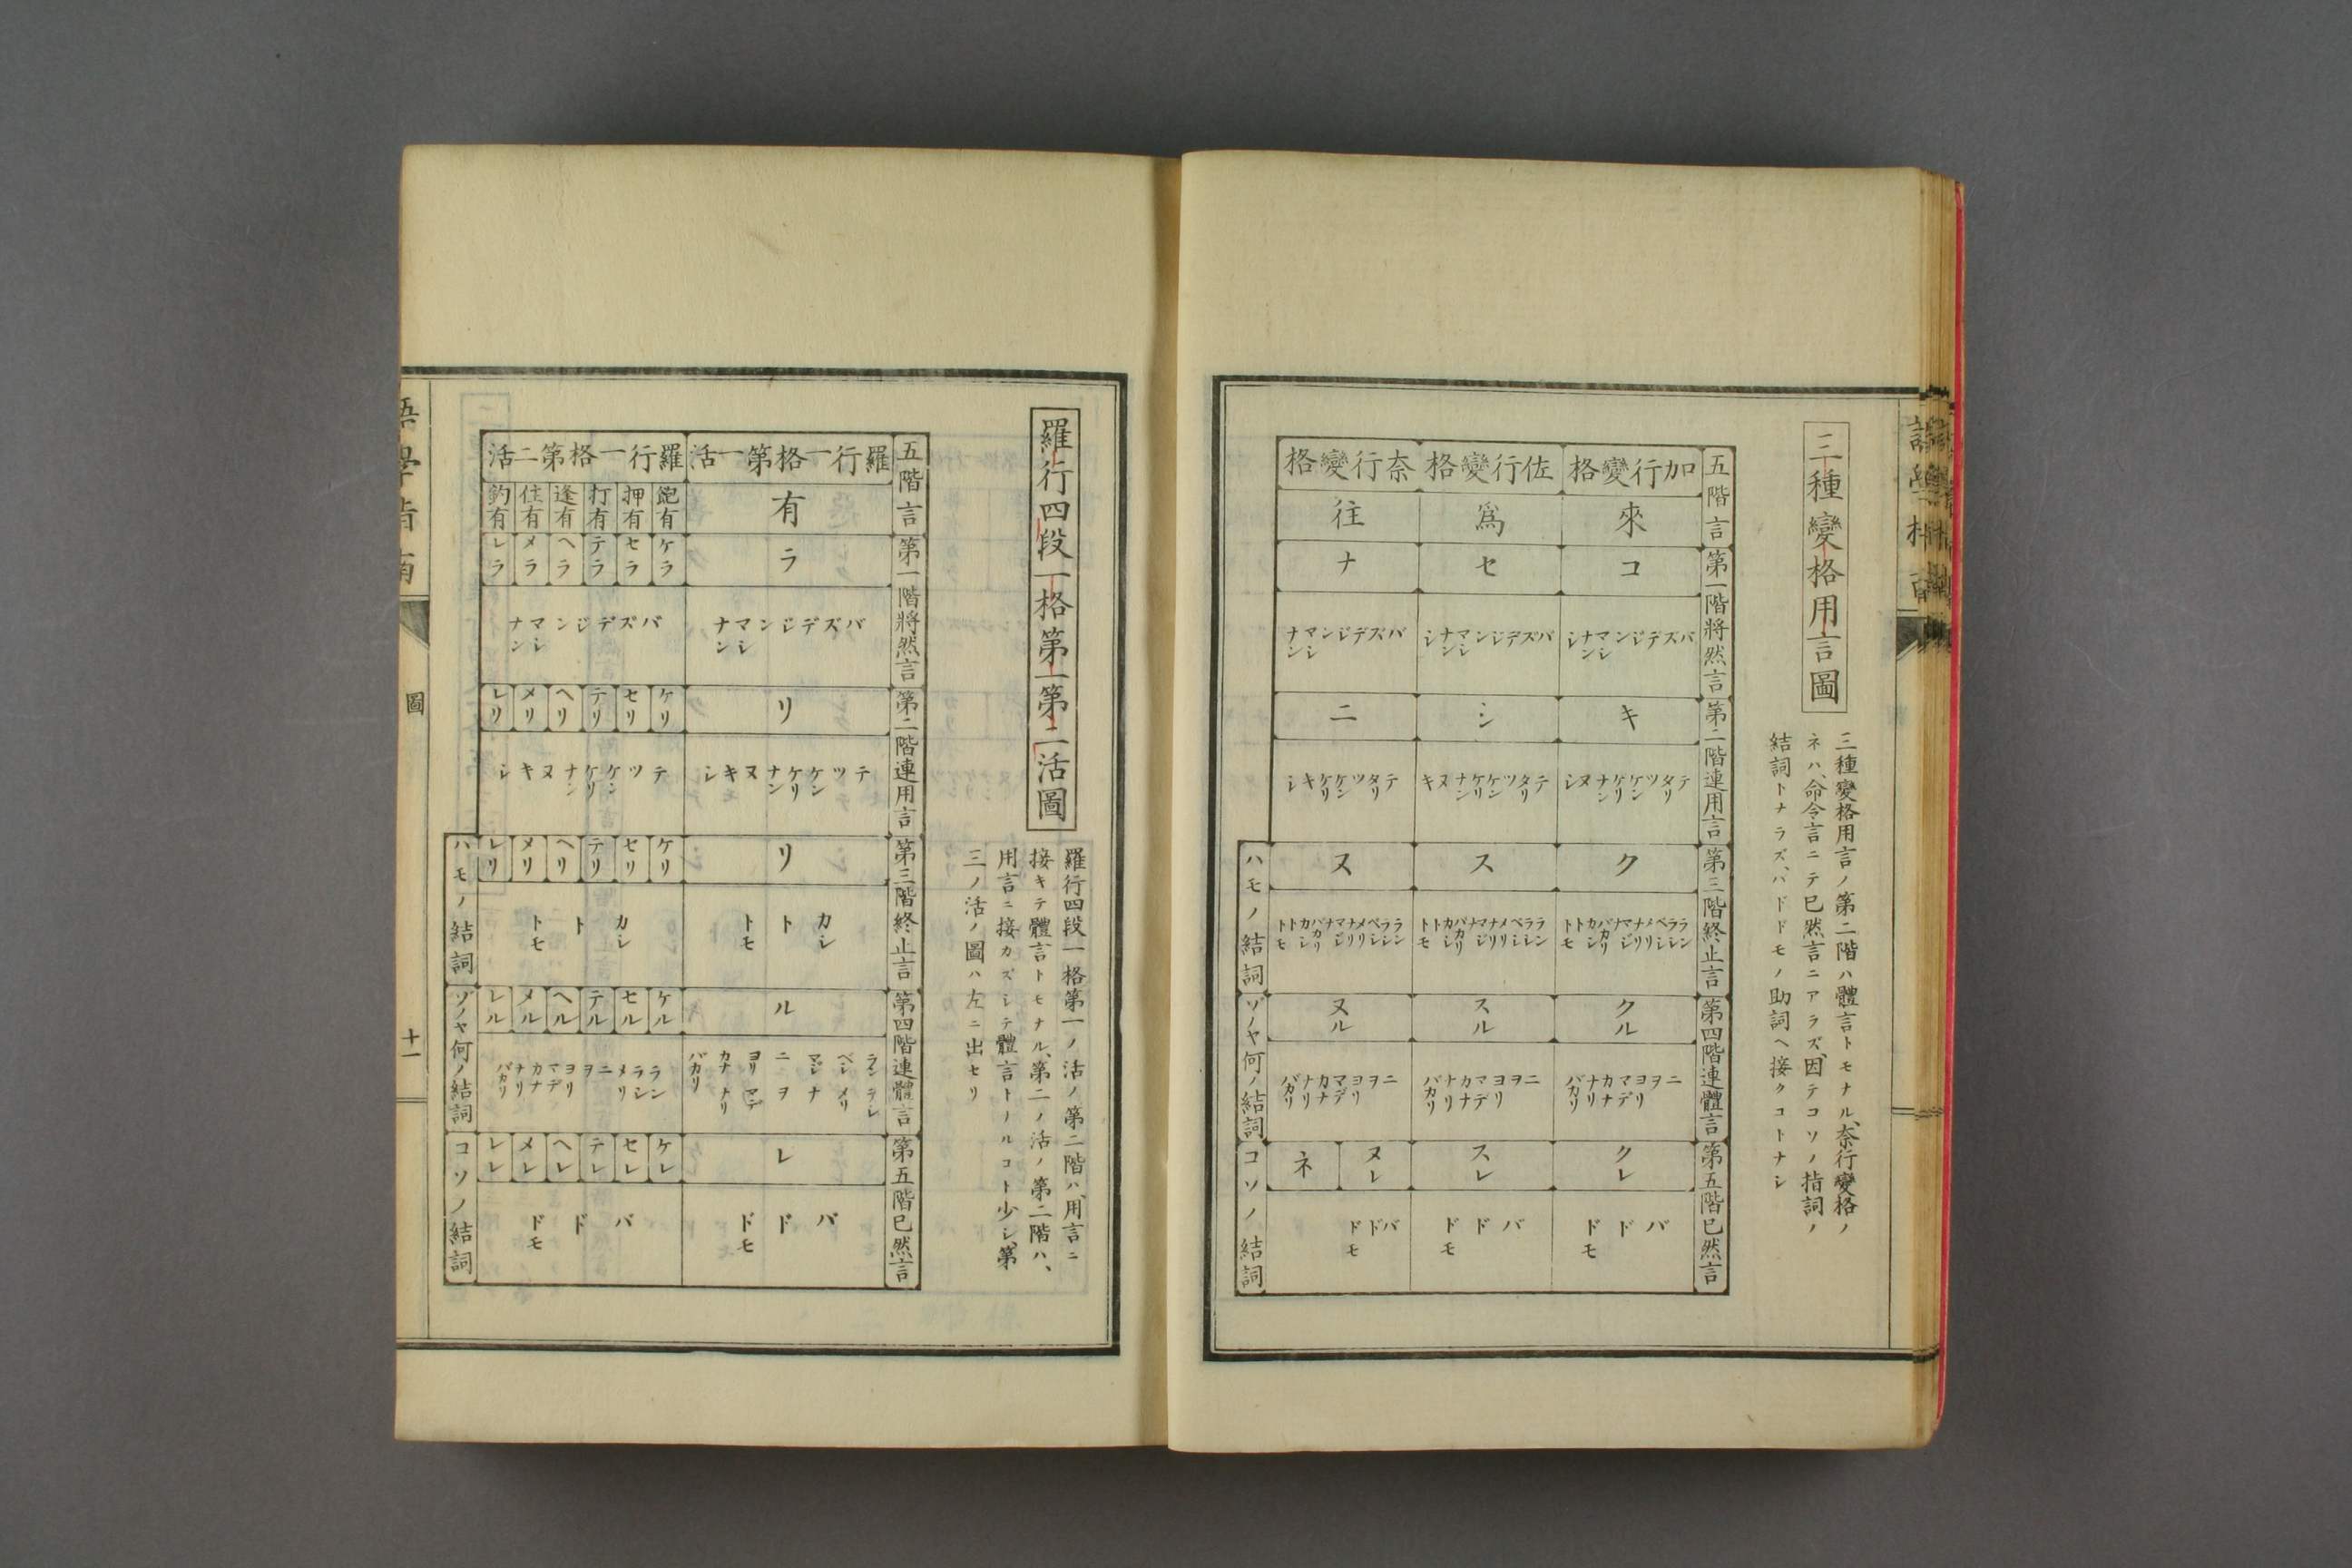 三種變格用言圖
三種變格用言ノ第二階ハ體言トモナル、奈行變格ノ
ネハ、命令言ニテ已然言ニアラズ、因テコソノ指詞ノ
結詞トナラズ、バドドモノ助詞ヘ接クコトナシ
五階言
第一階將然言
第二階連用言
第三階終止言
第四階連體言
第五階已然言
加行變格
來
コ
バ ズ デ ジ ン マシ ナン シ
キ
テ タリ ツ ケン ケリ ナン ヌ シ
ク
ラン ラシ ベシ メリ ナリ マジ ナ バカリ カシ ト トモ
クル
ニ ヲ ヨリ マデ カナ ナリ バカリ
クレ
バ ド ドモ
佐行變格
爲
セ
バ ズ デ ジ ン マシ ナン シ
シ
テ タリ ツ ケン ケリ ナン ヌ キ
ス
ラン ラシ ベシ メリ ナリ マジ ナ バカリ カシ ト トモ
スル
ニ ヲ ヨリ マデ カナ ナリ バカリ
スレ
バ ド ドモ
奈行變格
往
ナ
バ ズ デ ジ ン マシ ナン
ニ
テ タリ ツ ケン ケリ キ シ
ヌ
ラン ラシ ベシ メリ ナリ マジ ナ バカリ カシ ト トモ
ヌル
ニ ヲ ヨリ マデ カナ ナリ バカリ
ヌレ
ネ
バ ド ドモ
ハモノ結詞
ゾノヤ何ノ結詞
コソノ結詞
羅行四段一格第一第二活圖
羅行四段一格第一ノ活ノ第二階ハ、用言ニ
接キテ體言トモナル、第二ノ活ノ第二階ハ、
用言ニ接カズシテ體言トナルコト少シ、第
三ノ活ノ圖ハ左ニ出セリ
五階言
第一階將然言
第二階連用言
第三階終止言
第四階連體言
第五階已然言
羅行一格第一活
有
ラ
バ ズ デ ジ ン マシ ナン
リ
テ ツ ケン ケリ ナン ヌ キ シ
リ
カシ ト トモ
ル
ラン ラシ
ベシ メリ
マジ ナ
ニ ヲ
ヨリ マデ
カナ ナリ
バカリ
レ
バ ド ドモ
羅行一格第二活
飽有 押有 打有 逢有 住有 釣有
ケラ セラ テラ ヘラ メラ レラ
バ ズ デ ジ ン マシ ナン
ケリ セリ テリ ヘリ メリ レリ
テ ツ ケン ケリ ナン ヌ キ シ
ケリ セリ テリ ヘリ メリ レリ
カシ ト トモ
ケル セル テル ヘル メル レル
ラン ラシ メリ ニ ヲ ヨリ マデ カナ ナリ バカリ
ケレ セレ テレ ヘレ メレ レレ
バ ド ドモ
ハモノ結詞
ゾノヤ何ノ結詞
コソノ結詞
圖
十一